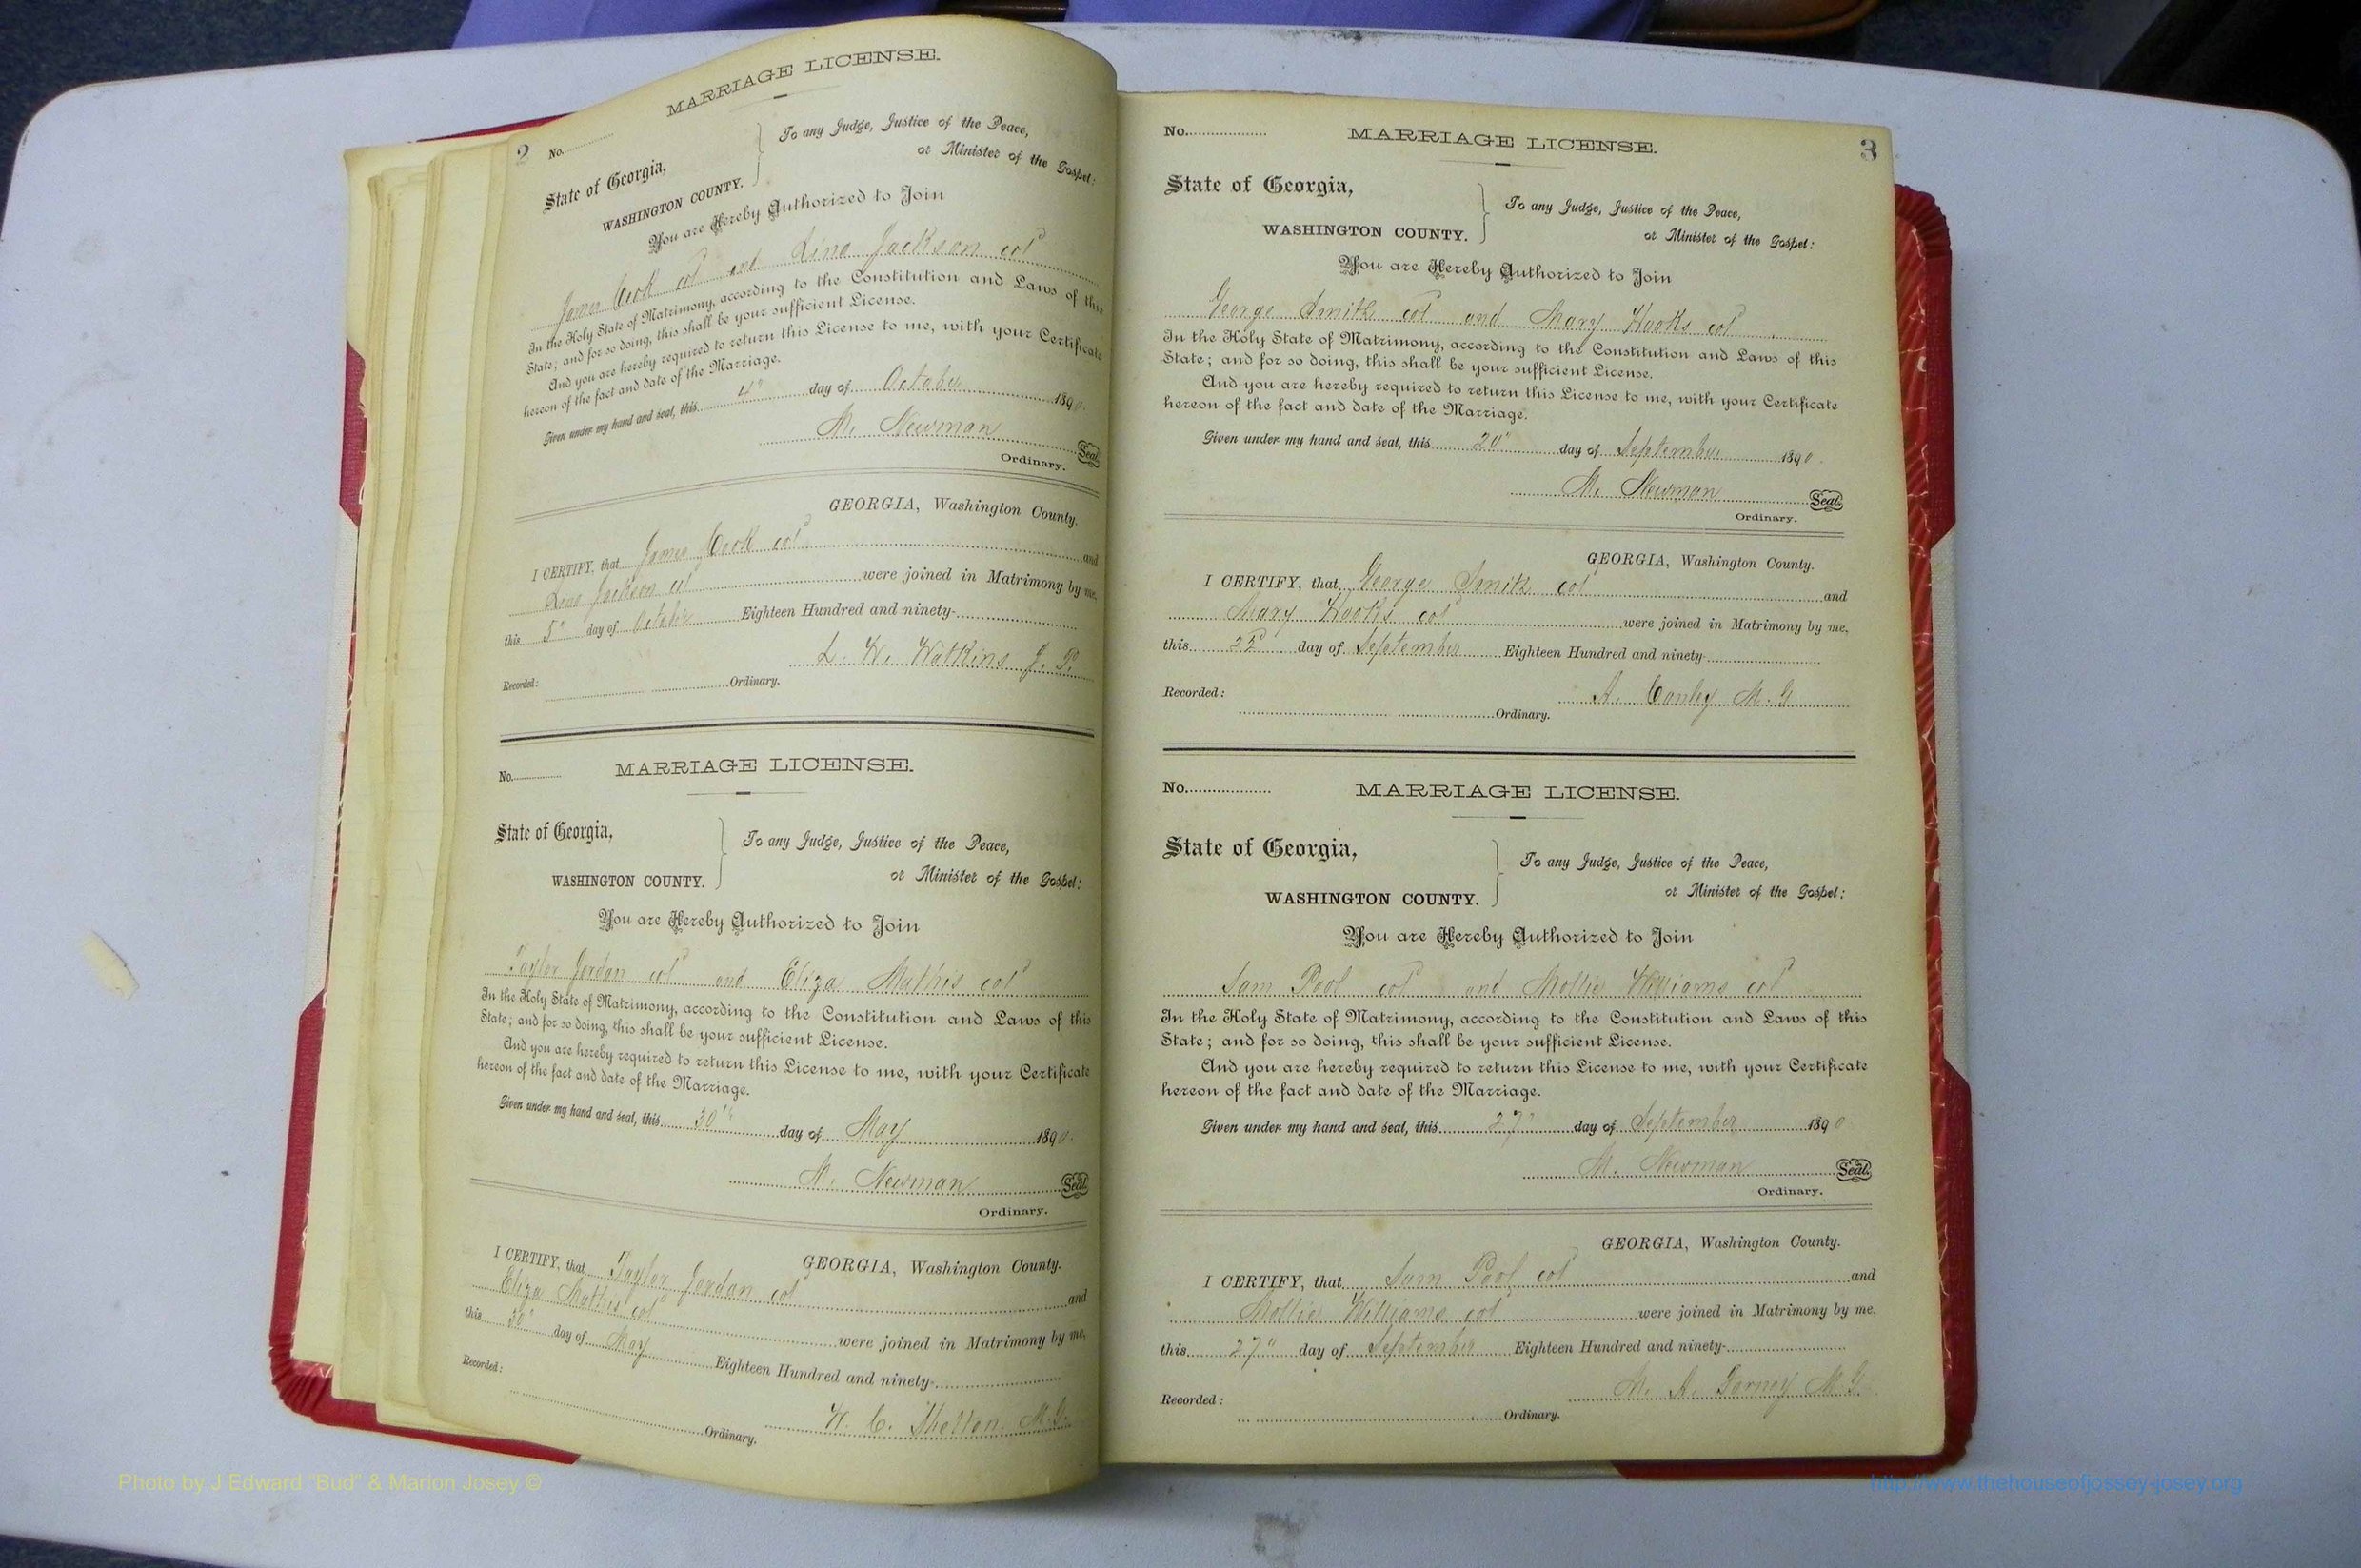 2
No.
MARRIAGE LICENSE.
State of Georgia,
WASHINGTON COUNTY.
To any Judge, Justice of the Peace,
or Minister of the Gospel:
You are Hereby Authorized to Join
James Cook col and Lina Jackson col
In the Holy State of Matrimony, according to the Constitution and Laws of this
State; and for so doing, this shall be your sufficient License.
And you are hereby required to return this License to me, with your Certificate
hereon of the fact and date of the Marriage.
Given under my hand and seal, this 4" day of October 1890.
M. Newman Seal.
Ordinary.
GEORGIA, Washington County.
I CERTIFY, that James Cook col and
Lina Jackson col were joined in Matrimony by me,
this 5" day of October Eighteen Hundred and ninety-
L. W. Watkins J. P.
Recorded:
Ordinary.
No.
MARRIAGE LICENSE.
State of Georgia,
WASHINGTON COUNTY.
To any Judge, Justice of the Peace,
or Minister of the Gospel:
You are Hereby Authorized to Join
Taylor Jordan col and Eliza Mathis col
In the Holy State of Matrimony, according to the Constitution and Laws of this
State; and for so doing, this shall be your sufficient License.
And you are hereby required to return this License to me, with your Certificate
hereon of the fact and date of the Marriage.
Given under my hand and seal, this 30th day of May 1890.
M. Newman Seal.
Ordinary.
GEORGIA, Washington County.
I CERTIFY, that Taylor Jordan col and
Eliza Mathis col were joined in Matrimony by me,
this 30" day of May Eighteen Hundred and ninety-
W. C. Shelton. M.G.
Recorded:
Ordinary.
3
No.
MARRIAGE LICENSE.
State of Georgia,
WASHINGTON COUNTY.
To any Judge, Justice of the Peace,
or Minister of the Gospel:
You are Hereby Authorized to Join
George Smith col and Mary Hooks col
In the Holy State of Matrimony, according to the Constitution and Laws of this
State; and for so doing, this shall be your sufficient License.
And you are hereby required to return this License to me, with your Certificate
hereon of the fact and date of the Marriage.
Given under my hand and seal, this 20" day of September 1890.
M. Newman Seal.
Ordinary.
GEORGIA, Washington County.
I CERTIFY, that George Smith col and
Mary Hooks col were joined in Matrimony by me,
this day of September Eighteen Hundred and ninety-
A. Conley M. G
Recorded:
Ordinary.
No.
MARRIAGE LICENSE.
State of Georgia,
WASHINGTON COUNTY.
To any Judge, Justice of the Peace,
or Minister of the Gospel:
You are Hereby Authorized to Join
Sam Pool col and Mollie Williams col
In the Holy State of Matrimony, according to the Constitution and Laws of this
State; and for so doing, this shall be your sufficient License.
And you are hereby required to return this License to me, with your Certificate
hereon of the fact and date of the Marriage.
Given under my hand and seal, this 27" day of September 1890
M. Newman Seal.
Ordinary.
GEORGIA, Washington County.
I CERTIFY, that Sam Pool col and
Mollie Williams col were joined in Matrimony by me,
this 27" day of September Eighteen Hundred and ninety-
M. G.
Recorded:
Ordinary.
Photo by J Edward "Bud" & Marion Josey ©
http://www.thehouseofjossey-josey.org